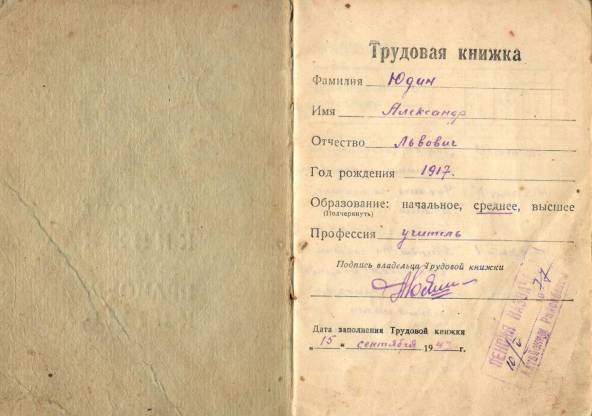 Трудовая книжка
Фамилия Юдин
Имя Александр
Отчество Львович
Год рождения 1917г.
Образование: начальное, среднее, высшее
(Подчеркнуть)
Профессия учитель
Подпись владельца Трудовой книжки
Дата заполнения Трудовой книжки
„15 " сентября 194 г.